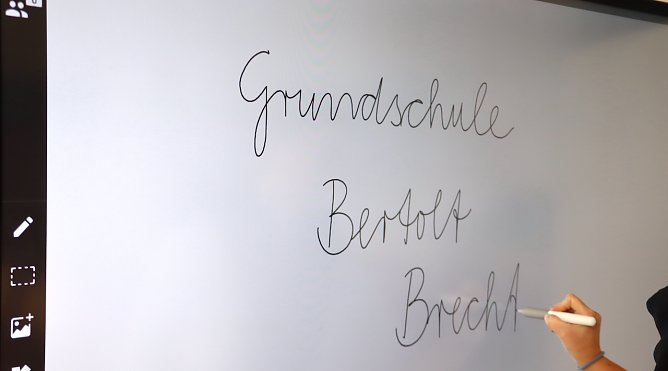 Grundschule
Bertolt
Brecht